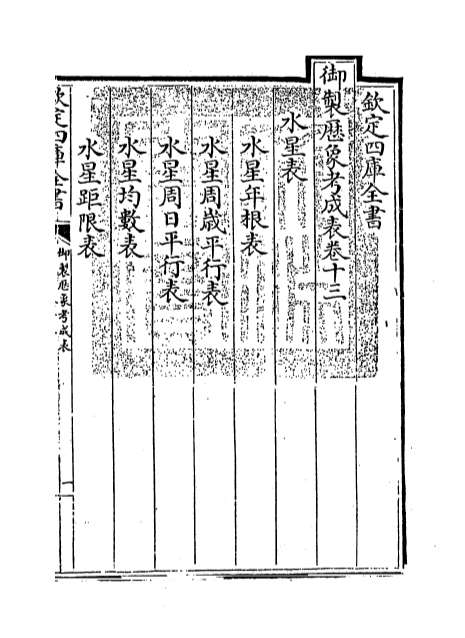 欽定四庫全書
御製歷象考成表卷十三
水星表
水星年根表
水星周歲平行表
水星周日平行表
水星均數表
水星距限表
欽定四庫全書
御製歷象考成表
一